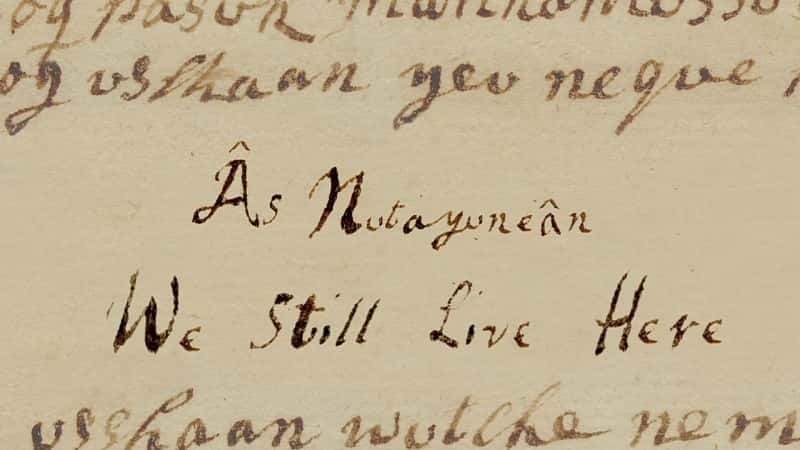 og pasuk
og usshaan yeu neque
Âs Nutayuneân
We Still Live Here
usshaan wutche nem